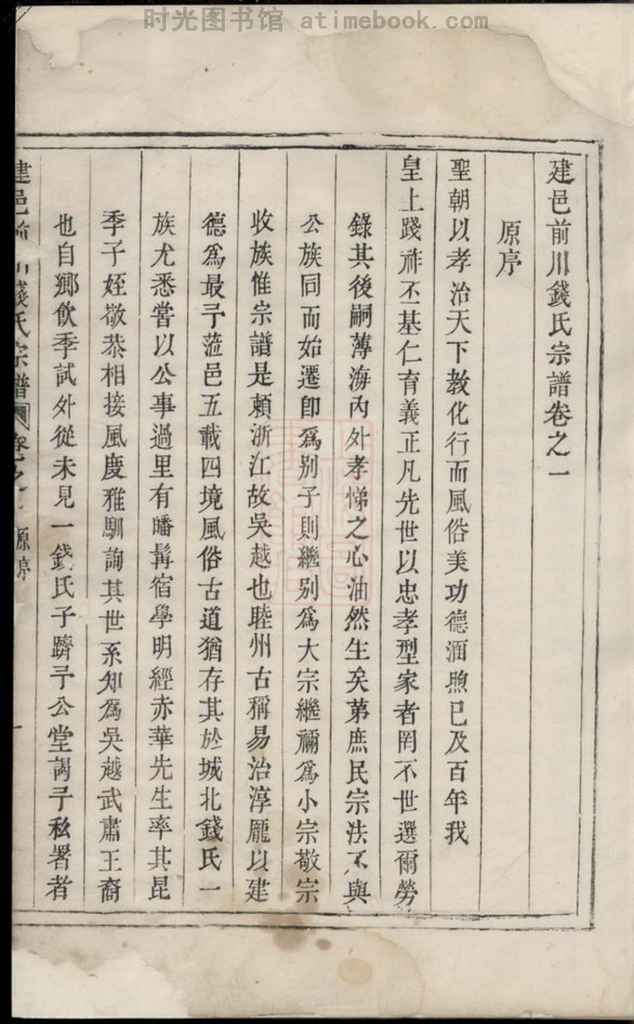 时光图书馆 atimebook.com
建邑前川錢氏宗譜卷之一
原序
聖朝以孝治天下教化行而風俗美功德洇煦已及百年我
皇上踐祚丕基仁育義正凡先世以忠孝型家者罔不世選爾勞
錄其後嗣薄海內外孝悌之心油然生矣第庶民宗法不與
公族同而始遷卽為別子則繼別為大宗繼禰為小宗敬宗
收族惟宗譜是賴浙江故吳越也睦州古稱易治淳龐以建
德為最予蒞邑五載四境風俗古道猶存其於城北錢氏一
族尤悉嘗以公事過里有皤髯宿學明經赤華先生率其昆
季子姪敬恭相接風度雅馴詢其世系知為吳越武肅王裔
也自鄉飲季試外從未見一錢氏子躋予公堂謁予私署者
建邑前川錢氏宗譜 卷之一 原序 一